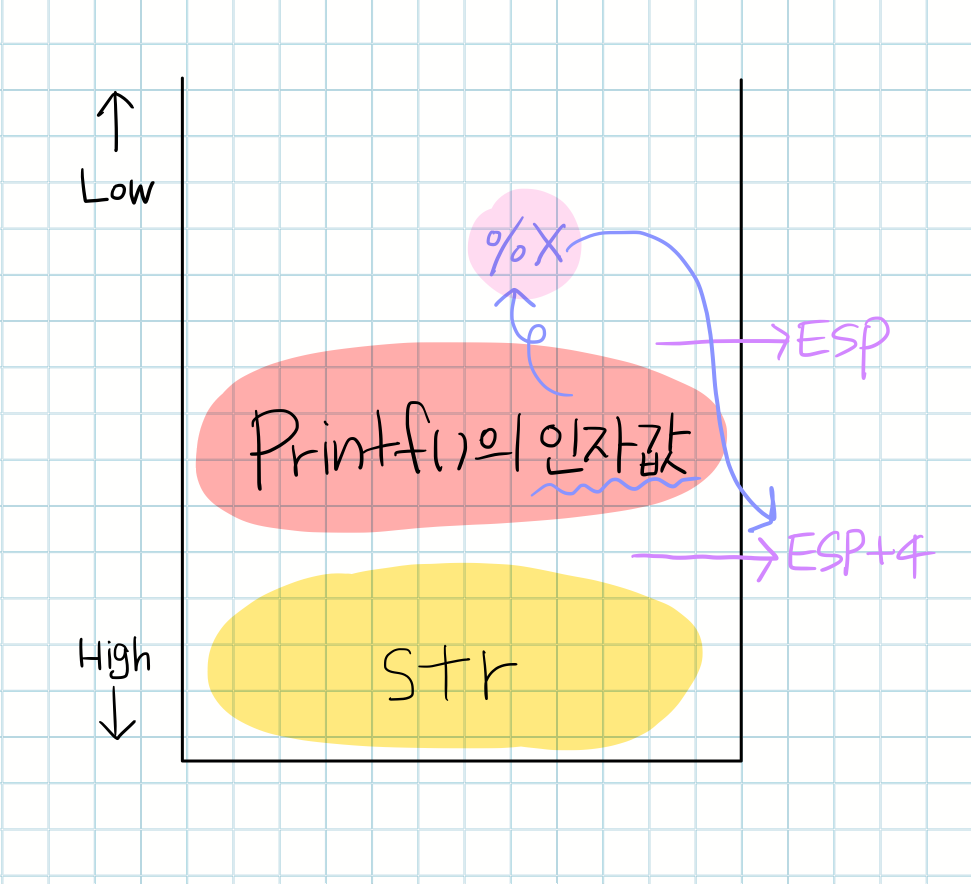 Low
%X
ESP
Printf()의 인자값
ESP+4
High
str